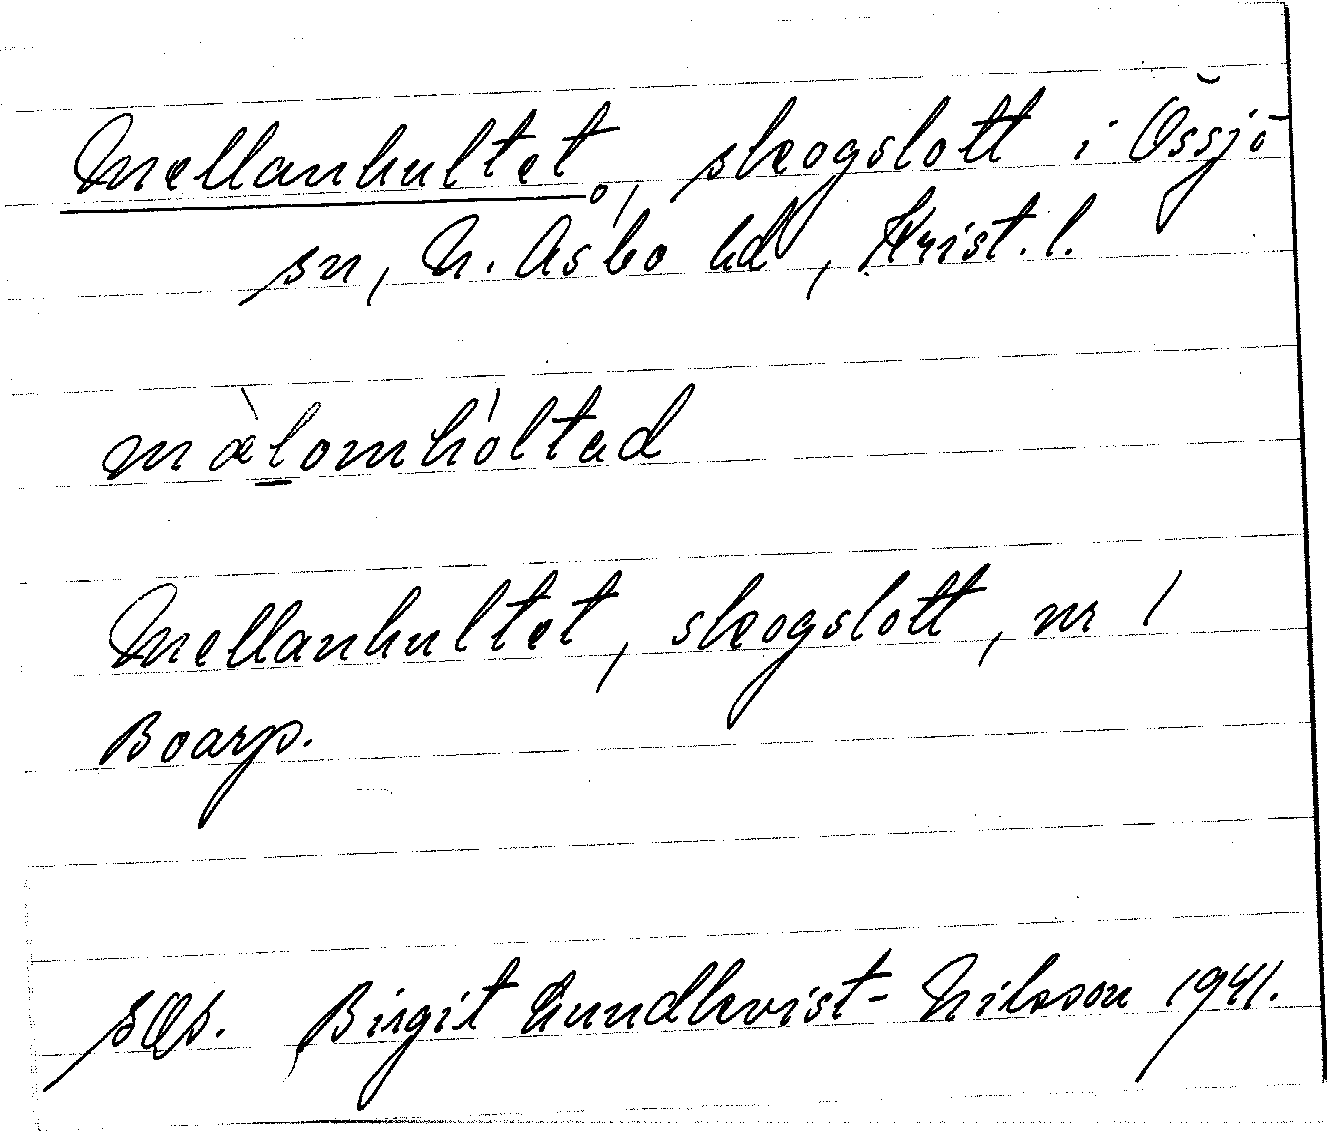 Mellanhultet, skogslott i Össjö
sn, N. Åsbo hd, Krist. l.
mæ̀lomhòltad
Mellanhultet, skogslott, nr 1
Boarp.
Birgit Lundkvist-Nilsson 1941.